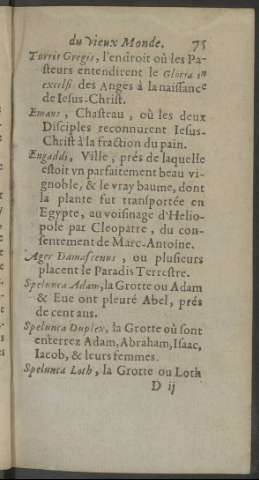 du vieux Monde. 75
Turris Gregis, l'endroit où les Pa-
steurs entendirent le Gloria in
excelsi des Anges à la naissance
de Iesus-Christ.
Emaus, Chasteau, où les deux
Disciples reconnurent Iesus-
Christ à la fraction du pain.
Engaddi, Ville, prés de laquelle
estoit vn parfaitement beau vi-
gnoble, & le vray baume, dont
la plante fut transportée en
Egypte, au voisinage d'Helio-
pole par Cleopatre, du con-
sentement de Marc-Antoine.
Ager Damascenus, ou plusieurs
placent le Paradis Terrestre.
Spelunca Adam, la Grotte ou Adam
& Eue ont pleuré Abel, prés
de cent ans.
Spelunca Duplex, la Grotte où sont
enterrez Adam, Abraham, Isaac,
Iacob, & leurs femmes.
Spelunca Loth, la Grotte ou Loth
D ij